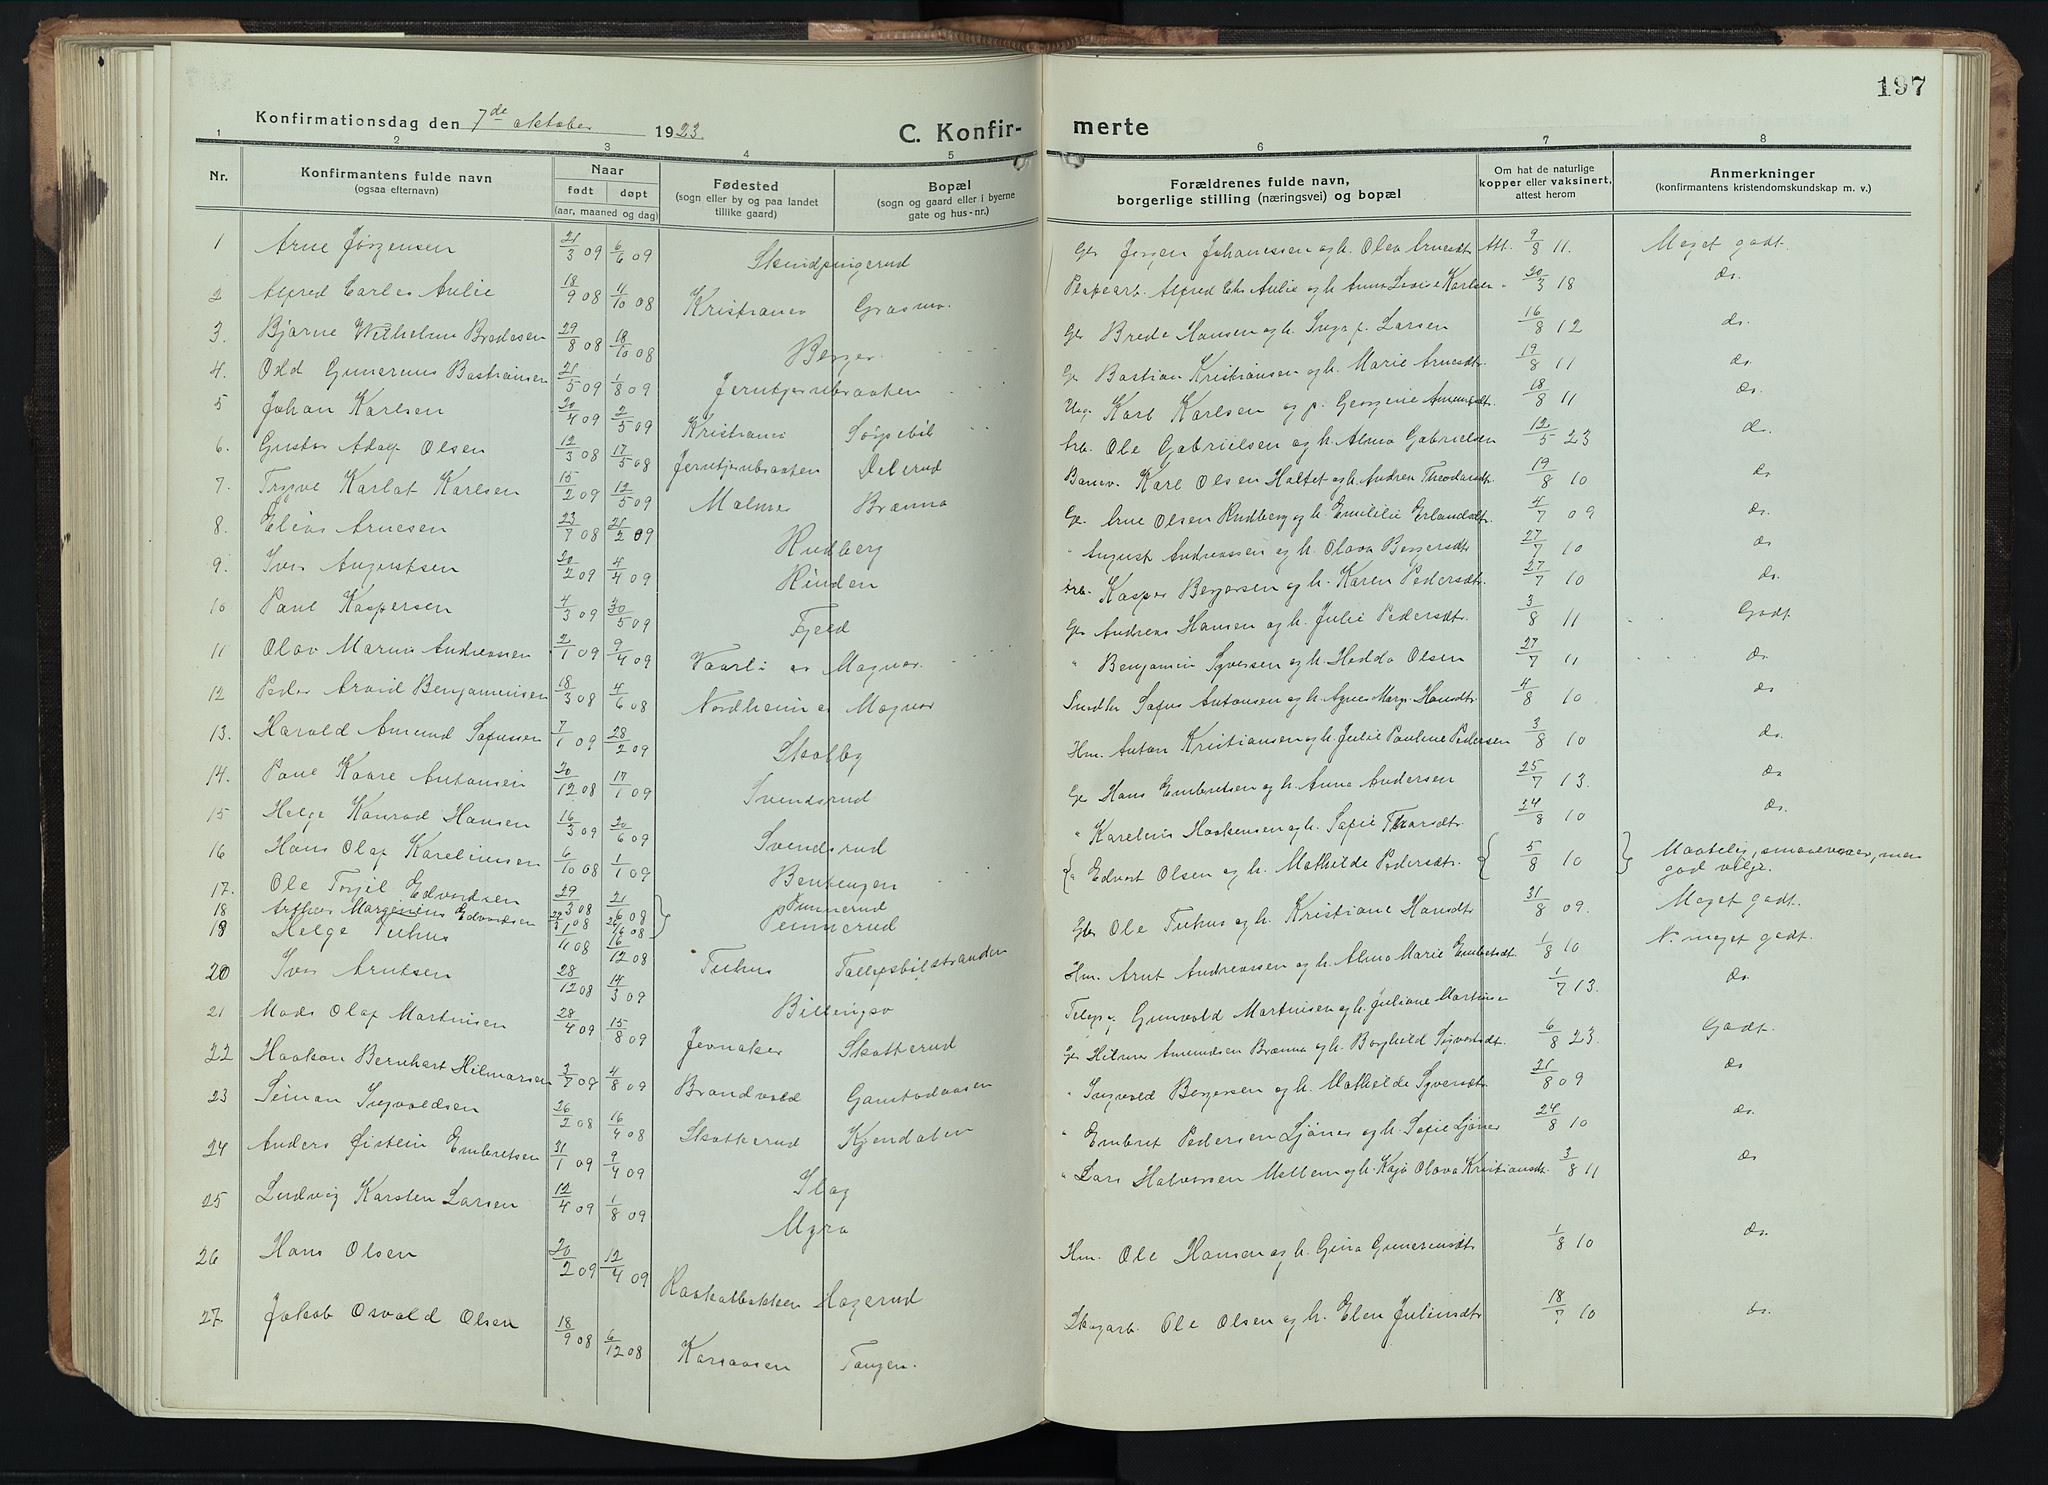 197
Konfirmationsdag den 7de oktober 1923.
C. Konfir- merte
1 2 3 4 5 6 7 8
Nr.
Konfirmantens fulde navn
(ogsaa efternavn)
Naar
født døpt
(aar, maaned og dag)
Fødested
(sogn eller by og paa landet
tillike gaard)
Bopæl
(sogn og gaard eller i byerne
gate og hus-nr.)
Forældrenes fulde navn,
borgerlige stilling (næringsvei) og bopæl
Om hat de naturlige
kopper eller vaksinert,
attest herom
Anmerkninger
(konfirmantens kristendomskundskap m. v.)
1 Arne Jørgensen 21/3 09 6/6 09 Gbr Jørgen Johanssen og h. Olea Arnesdt. Att. 9/8 11. Meget godt.
2 Alfred Carlo Aulie 18/9 08 4/10 08 Kristiania Grasmo. Alfred Chr. Aulie og h. Anna Lovise Karlsen 20/3 18 do.
3. Bjarne Wilhelm Bredesen 29/8 08 18/10 08 Berger. Brede Hansen og h. Inga f. Larsen 16/8 12 do.
4. Odd Gunerius Bastiansen 21/5 09 1/8 09 Jerntjernbraaten Bastian Kristiansen og h. Marie Arnesdt. 19/8 11 do.
5 Johan Karlsen 20/4 09 2/5 09 Kristiania Sørpebøl Karl Karlsen og p. Georgine Amundsdt. 18/8 11 do.
6. Gustav Adolf Olsen 12/3 08 17/5 08 Jerntjernbraaten Delerud Ole Gabrielsen og h. Alma Gabrielsen 12/5 23 do.
7. Trygve Karlot Karlsen 15/2 09 12/5 09 Malmer Brænna Banev. Karl Olsen Holtet og h. Andrea Theodorsdt. 19/8 10 do
8. Elias Arnesen 23/7 08 21/2 09 Rudberg Arne Olsen Rudberg og h. Emilie Erlandsdt. 4/7 09 do.
9. Iver Augustsen 20/2 09 4/4 09 Rinden " August Andreassen og h. Olava Bergersdt 27/7 10 do
10 Paul Kaspersen 4/3 09 30/5 09 Fjeld Kasper Bergersen og h. Karen Pedersdt. 27/7 10 do.
11 Olav Marius Andreassen 2/1 09 9/4 09 Vaarli av Magnor. Gbr Andreas Hansen og h. Julie Pedersdt. 3/8 11 Godt.
12 Peder Arvid Benjaminsen 18/3 08 4/6 08 Nordheim av Magnor " Benjamin Syversen og h. Hedda Olsen 27/7 11 do.
13. Harald Amund Sofussen 7/1 09 28/2 09 Skolby Snedker Sofus Antonsen og h. Agnes Marg. Hansdt. 4/8 10 do
14. Paul Kaare Antonsen 20/12 08 17/1 09 Svendsrud Hm. Anton Kristiansen og h. Julie Pauline Pedersen 3/8 10 do.
15 Helge Konrad Hansen 16/3 09 20/6 09 Svendsrud Gbr Hans Embretsen og h. Anna Andersen 25/7 13. do
16 Hans Olaf Kareliussen 6/10 08 1/1 09 Bentengen " Karelius Haakensen og h. Sofie Thorsdt. 24/8 10 do.
17. Ole Torgil Edvardsen 29/3 08 21/6 08 Pennerud " Edvart Olsen og h. Mathilde Pedersdt. 5/8 10 Maatelig, smaa evner, men
god vilje.
18 Arthur Margenius Edvardsen 29/3 08 21/6 08 Pennerud
19 Helge Tuhus 1/11 08 16/12 08 Tuhus Tallaksbølstranden Gbr Ole Tuhus og h. Kristiane Hansdt. 31/8 09. Meget godt.
20 Iver Arntsen 28/12 08 14/3 09 Billingso Hm. Arnt Andreassen og h. Alma Marie Embretsdt. 1/8 10 N. meget godt.
21 Mads Olaf Martinsen 28/4 09 15/8 09 Jevnaker Skotterud Gunvald Martinsen og h. Juliane Martinsen 1/7 13. do.
22 Haakon Bernhart Hilmarsen 3/7 09 4/8 09 Brandvold Gamtodaasen Gbr Hilmar Amundsen Brænna og h. Borghild Sigvartsdt. 6/8 23. Godt.
23 Seimon Ingvaldsen 26/2 08 16/4 08 Skotterud Kjendalen " Ingvald Bergersen og h. Mathilde Syversdt. 21/8 09 do
24 Anders Øistein Embretsen 31/1 09 9/4 09 Slag " Embret Pedersen Ljønes og h. Sofie Ljønes 24/8 10 do.
25 Ludvig Karsten Larsen 12/4 09 1/8 09 Myra " Lars Halvorsen Mellem og h. Kaja Olava Kristiansdt. 3/8 11 do
26 Hans Olsen 20/2 09 12/4 09 Raskalbakken Hagerud Hm. Ole Hansen og h. Gina Guneriusdt 1/8 10 do.
27. Jakob Osvald Olsen 18/9 08 6/12 08 Karsaasen Tangen. Skogarb. Ole Olsen og h. Elen Juliusdt. 18/7 10 do.